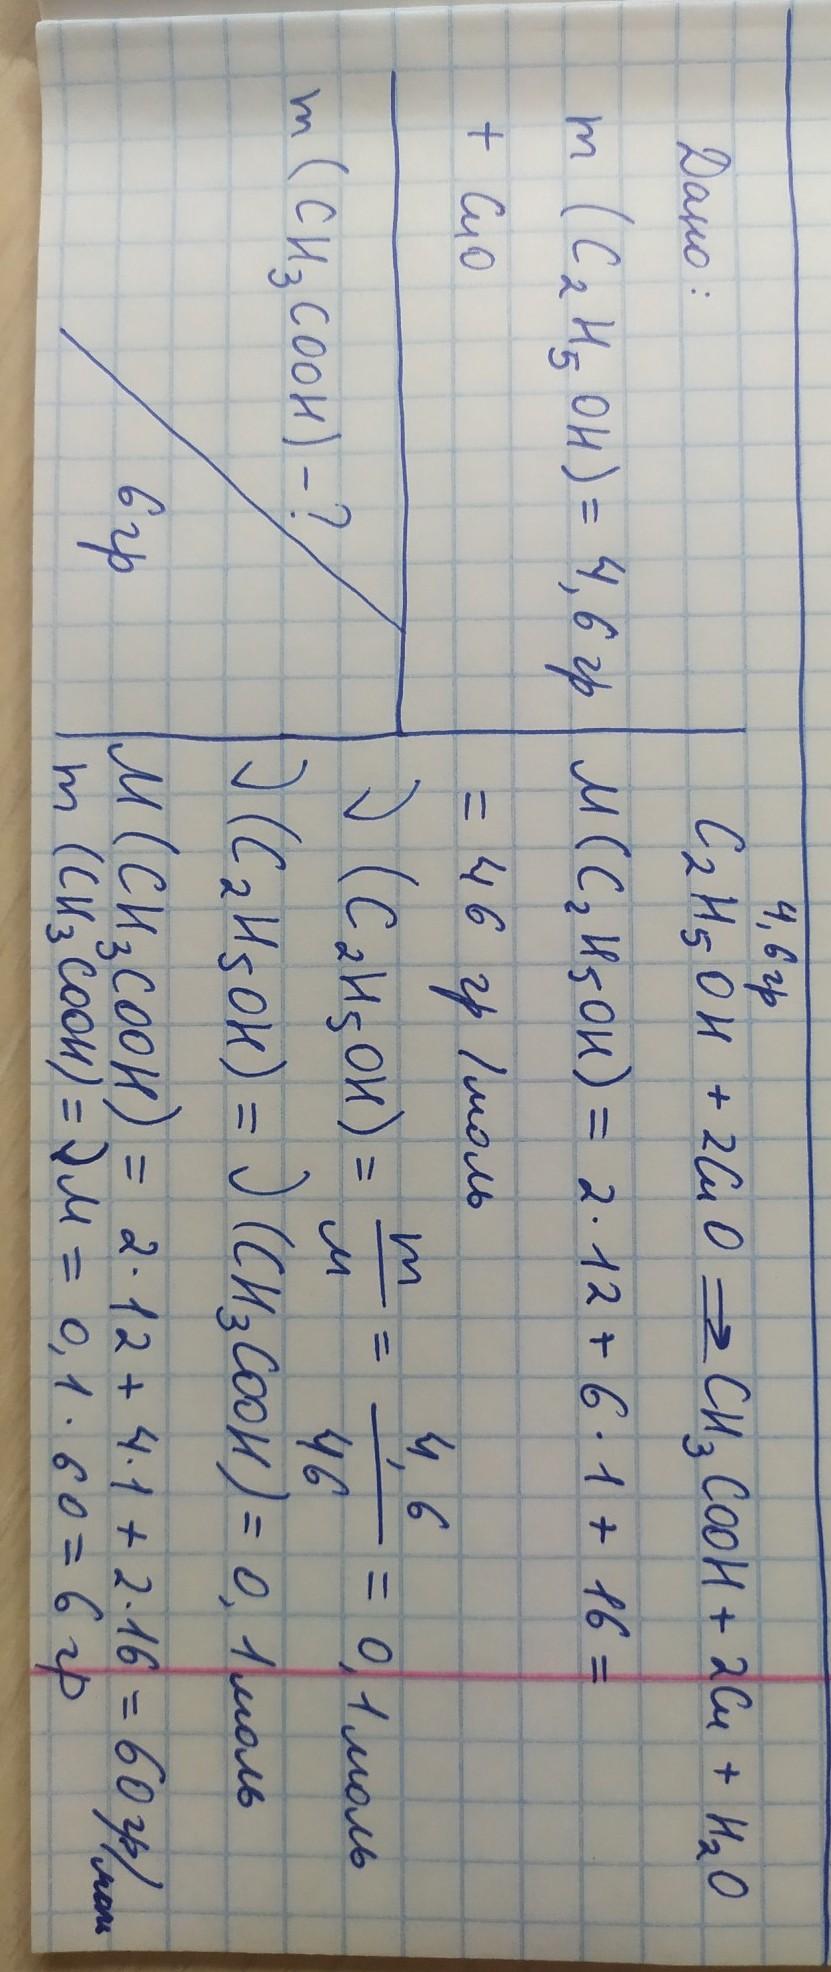 Дано:
m (C₂H₅OH) = 4,6 гр
+ CuO
m (CH₃COOH) - ?
6 гр
4,6 гр
C₂H₅OH + 2CuO → CH₃COOH + 2Cu + H₂O
M(C₂H₅OH) = 2·12 + 6·1 + 16 =
= 46 гр /моль
ν (C₂H₅OH) = m/M = 4,6/46 = 0,1 моль
ν (C₂H₅OH) = ν (CH₃COOH) = 0,1 моль
M (CH₃COOH) = 2·12 + 4·1 + 2·16 = 60 гр/моль
m (CH₃COOH) = νM = 0,1 · 60 = 6 гр